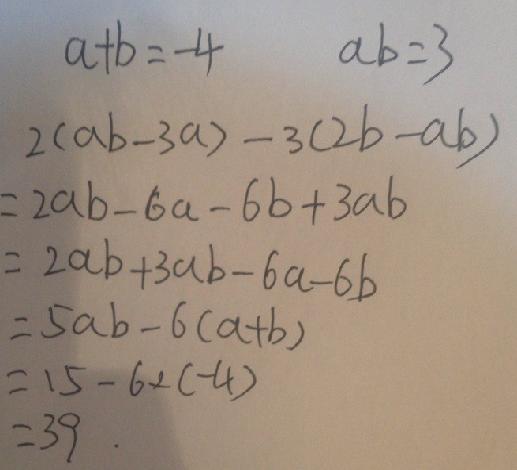 a+b=-4 ab=3
2(ab-3a)-3(2b-ab)
=2ab-6a-6b+3ab
=2ab+3ab-6a-6b
=5ab-6(a+b)
=15-6×(-4)
=39.